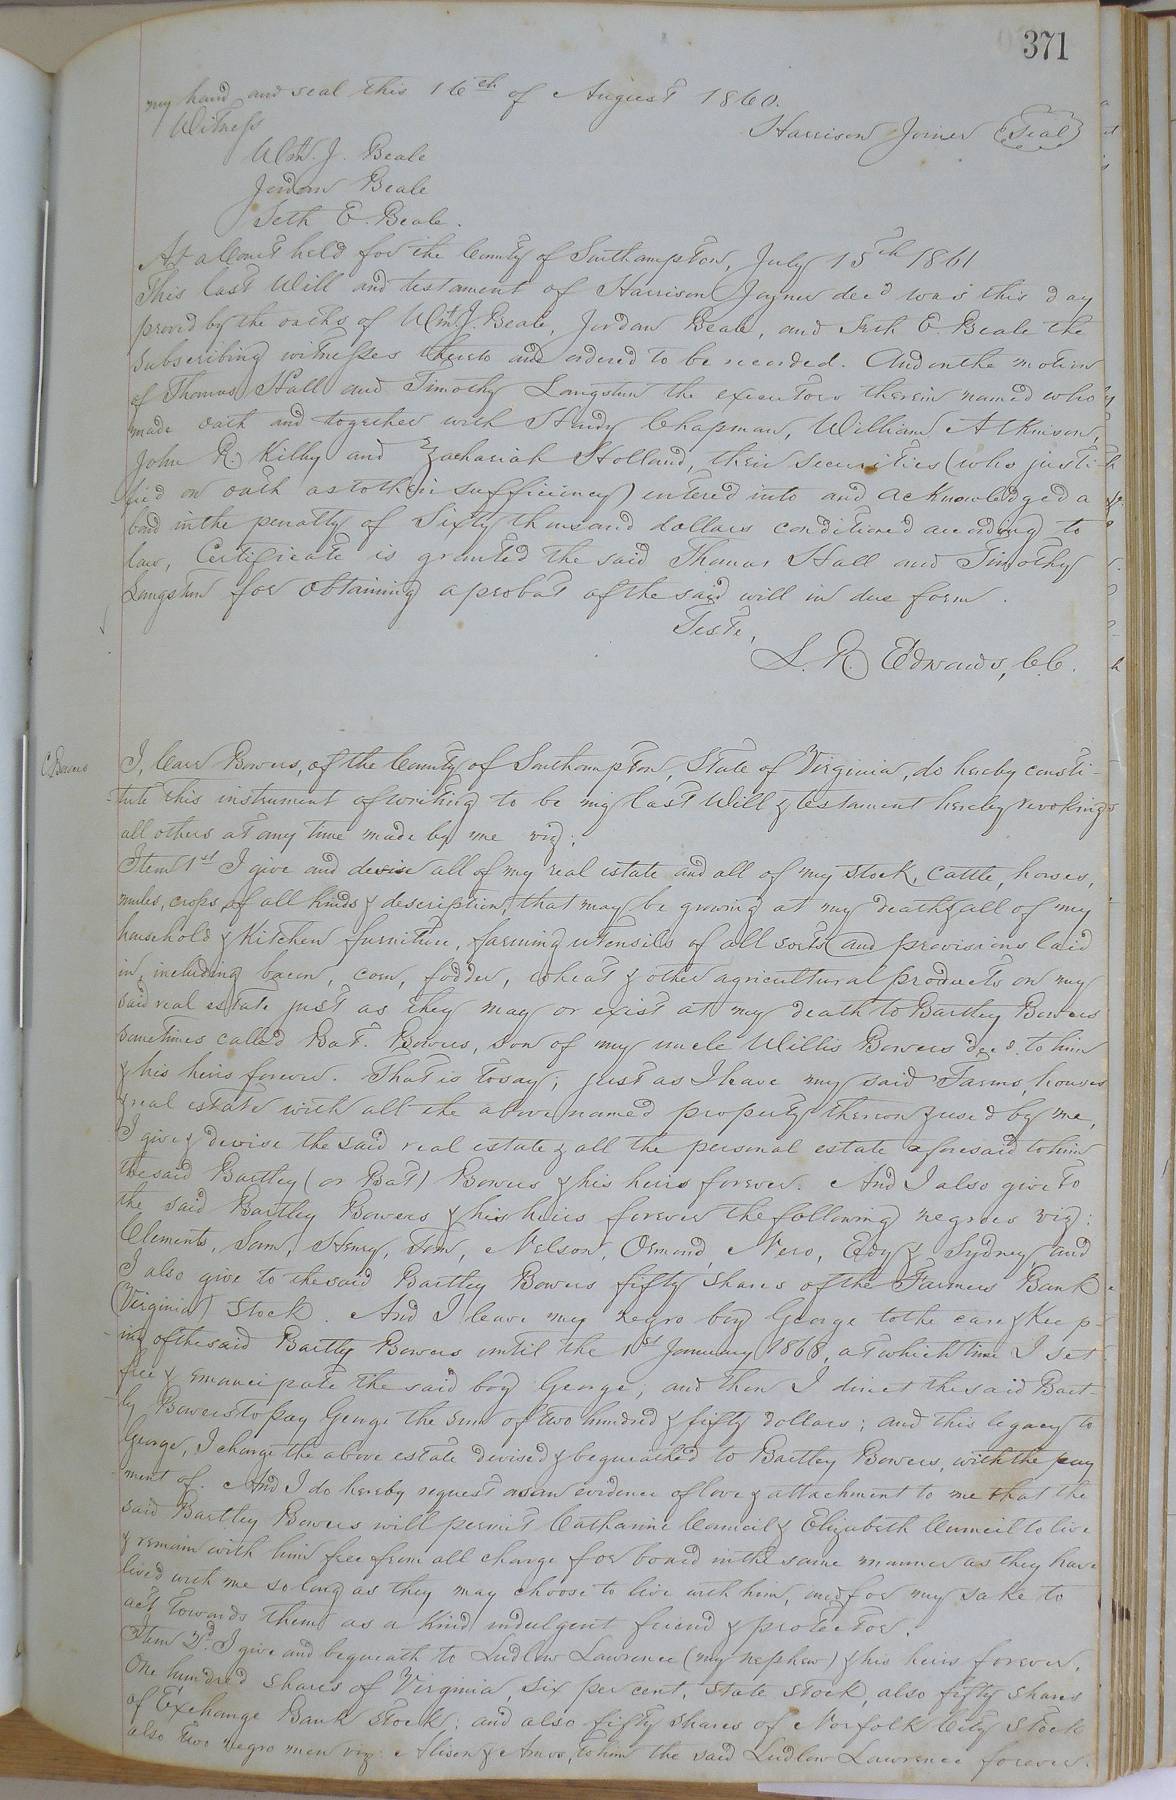 371
my hand and seal this 16th of August 1860.
Witness
Harrison Joiner (Seal)
Wm. J. Beale
Jordan Beale
Seth E. Beale.
At a Court held for the County of Southampton, July 15th 1861
This last Will and testament of Harrison Joyner decd was this day
proved by the oaths of Wm. J. Beale, Jordan Beale, and Seth E. Beale the
subscribing witnesses thereto and ordered to be recorded. And on the motion
of Thomas Hall and Timothy Langston the executors therein named who
made oath and together with Hardy Chapman, William Atkinson,
John R. Kilby and Zachariah Holland, their securities (who justi-
fied on oath as to their sufficiency) entered into and acknowledged a
bond in the penalty of Sixty thousand dollars conditioned according to
law, Certificate is granted the said Thomas Hall and Timothy
Langston for obtaining a probat of the said will in due form.
Teste,
L. R. Edwards, C.C.
C. Bowers
I, Carr Bowers, of the County of Southampton, State of Virginia, do hereby consti-
tute this instrument of writing to be my last Will & testament hereby revoking
all others at any time made by me viz:
Item 1st I give and devise all of my real estate and all of my stock, cattle, horses,
mules, crops of all kinds & description, that may be growing at my death & all of my
household & kitchen furniture, farming utensils of all sorts and provisions laid
in, including bacon, corn, fodder, wheat & other agricultural products on my
said real estate just as they may or exist at my death to Bartley Bowers
sometimes called Bat. Bowers, son of my uncle Willis Bowers decd. to him
& his heirs forever. That is to say; just as I leave my said Farms, houses
& real estate with all the above named property thereon & used by me,
I give & devise the said real estate & all the personal estate aforesaid to him
the said Bartley (or Bat) Bowers & his heirs forever. And I also give to
the said Bartley Bowers & his heirs forever the following negroes viz:
Clements, Sam, Henry, Tom, Nelson, Ormond, Nero, Edy & Sydney, and
I also give to the said Bartley Bowers fifty shares of the Farmers Bank
(Virginia) stock. And I leave my negro boy George to the care & keep-
ing of the said Bartley Bowers until the 1st January 1868, at which time I set
free & emancipate the said boy George; and then I direct the said Bart-
ley Bowers to pay George the sum of two hundred & fifty dollars; and this legacy to
George, I charge the above estate devised & bequeathed to Bartley Bowers, with the pay
ment of. And I do hereby request as an evidence of love & attachment to me that the
said Bartley Bowers will permit Catharine Council & Elizabeth Council to live
& remain with him free from all charge for board in the same manner as they have
lived with me so long as they may choose to live with him, and for my sake to
act towards them as a kind indulgent friend & protector.
Item 2d. I give and bequeath to Ludlow Lawrence (my nephew) & his heirs forever,
One hundred shares of Virginia, six per cent, state stock, also fifty shares
of Exchange Bank stock; and also fifty shares of Norfolk City stock
also two negro men viz: Alison & Amos, to him the said Ludlow Lawrence forever.